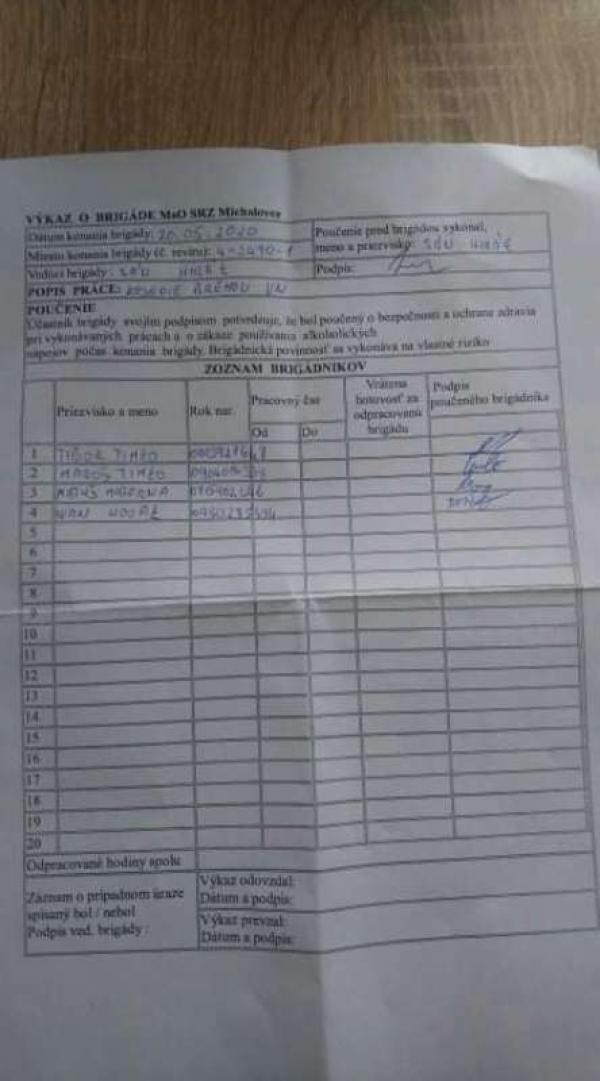 VÝKAZ O BRIGÁDE MsO SRZ Michalovce
Dátum konania brigády: 20.05.2020
Miesto konania brigády (č. revíru): 4-2490-1
Vedúci brigády:
POPIS PRÁCE: KOSENIE BREHOV VN
Poučenie pred brigádou vykonal,
meno a priezvisko:
Podpis:
POUČENIE
Účastník brigády svojím podpisom potvrdzuje, že bol poučený o bezpečnosti a ochrane zdravia
pri vykonávaných prácach a o zákaze používania alkoholických
nápojov počas konania brigády. Brigádnická povinnosť sa vykonáva na vlastné riziko
ZOZNAM BRIGÁDNIKOV
Priezvisko a meno
Rok nar.
Pracovný čas
Od
Do
Vrátena
hotovosť za
odpracovanú
brigádu
Podpis
poučeného brigádnika
1 TIBOR TIMKO
2 TIMKO
3
4 IVAN
5
6
7
8
9
10
11
12
13
14
15
16
17
18
19
20
Odpracované hodiny spolu
Záznam o prípadnom úraze
spísaný bol / nebol
Podpis ved. brigády :
Výkaz odovzdal:
Dátum a podpis:
Výkaz prevzal:
Dátum a podpis: